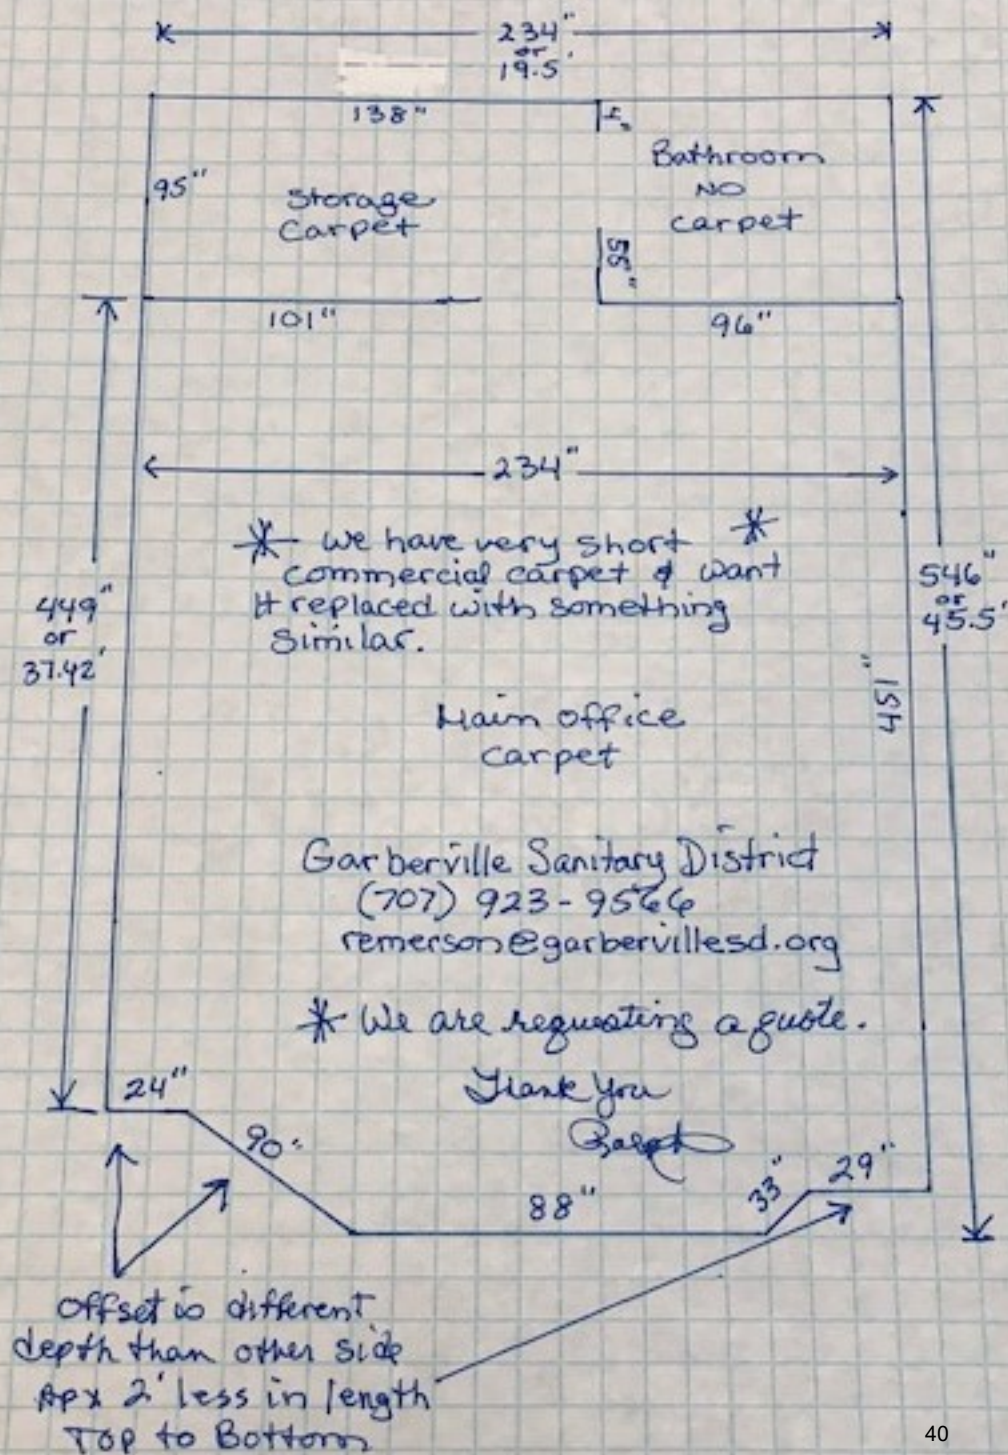 234"
or
19.5'
138"
4"
Bathroom
NO
carpet
95"
Storage
Carpet
55"
101"
96"
234"
* We have very short *
commercial carpet & want
it replaced with something
similar.
449"
or
37.42'
546"
or
45.5'
451"
Main office
carpet
Garberville Sanitary District
(707) 923-9566
remerson@garbervillesd.org
* We are requesting a quote.
Thank You
Ralph
24"
90"
88"
33"
29"
Offset is different
depth than other side
Apx 2' less in length
Top to Bottom
40